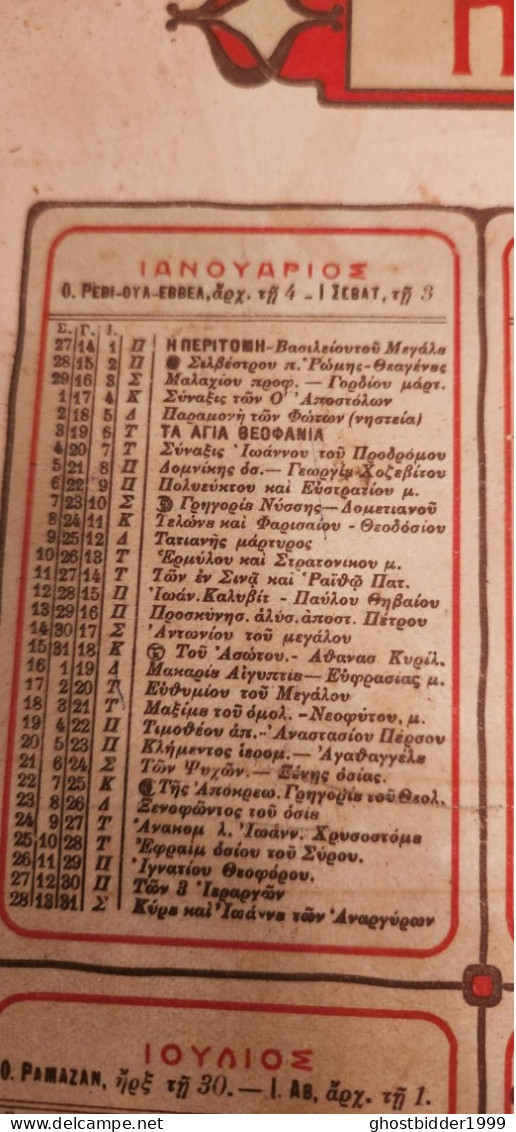 ΙΑΝΟΥΑΡΙΟΣ
Ο. ΡΕΒΙ-ΟΥΛ-ΕΒΒΕΛ, ἄρχ. τῇ 4 - Ι ΣΕΒΑΤ, τῇ 3
Σ. Γ. Ι.
27 14 1 Π Η ΠΕΡΙΤΟΜΗ-Βασιλείου τοῦ Μεγάλȣ
28 15 2 Π Σιλβέστρου π. Ῥώμης-Θεαγένȣς
29 16 3 Σ Μαλαχίου προφ. — Γορδίου μάρτ.
1 17 4 Κ Σύναξις τῶν Ο' Ἀποστόλων
2 18 5 Δ Παραμονὴ τῶν Φώτων (νηστεία)
3 19 6 Τ ΤΑ ΑΓΙΑ ΘΕΟΦΑΝΙΑ
4 20 7 Τ Σύναξις Ἰωάννου τοῦ Προδρόμου
5 21 8 Π Δομνίκης ὁσ.— Γεωργίȣ Χοζεβίτου
6 22 9 Π Πολυεύκτου καὶ Εὐστρατίου μ.
7 23 10 Σ Γρηγορίȣ Νύσσης—Δομετιανοῦ
8 24 11 Κ Τελώνȣ καὶ Φαρισαίου - Θεοδόσίου
9 25 12 Δ Τατιανῆς μάρτυρος
10 26 13 Τ Ἑρμύλου καὶ Στρατονίκου μ.
11 27 14 Τ Τῶν ἐν Σινᾷ καὶ Ῥαϊθῷ Πατ.
12 28 15 Π Ἰωάν. Καλυβίτ - Παύλου Θηβαίου
13 29 16 Π Προσκύνησ. ἁλύσ. ἀποστ. Πέτρου
14 30 17 Σ Ἀντωνίου τοῦ μεγάλου
15 31 18 Κ Τοῦ Ἀσώτου.- Ἀθανασ. Κυρίλ.
16 1 19 Δ Μακαρίȣ Αἰγυπτίȣ— Εὐφρασίας μ.
17 2 20 Τ Εὐθυμίου τοῦ Μεγάλου
18 3 21 Τ Μαξίμȣ τοῦ ὁμολ. -Νεοφύτου, μ.
19 4 22 Π Τιμοθέου ἀπ.-Ἀναστασίου Πέρσου
20 5 23 Π Κλήμεντος ἱερομ.—Ἀγαθαγγέλȣ
21 6 24 Σ Τῶν Ψυχῶν.— Ξένης ὁσίας.
22 7 25 Κ Τῆς Ἀπόκρεω. Γρηγορίȣ τοῦ Θεολ.
23 8 26 Δ Ξενοφῶντος τοῦ ὁσίȣ
24 9 27 Τ Ἀνακομ λ. Ἰωάνν. Χρυσοστόμȣ
25 10 28 Τ Ἐφραὶμ ὁσίου τοῦ Σύρου.
26 11 29 Π Ἰγνατίου Θεοφόρου.
27 12 30 Π Τῶν 3 Ἱεραρχῶν
28 13 31 Σ Κύρȣ καὶ Ἰωάννȣ τῶν Ἀναργύρων
ΙΟΥΛΙΟΣ
Ο. ΡΑΜΑΖΑΝ, ἤρξ τῇ 30.— Ι. ΑΒ, ἄρχ. τῇ 1.
Posted for ghostbidder1999